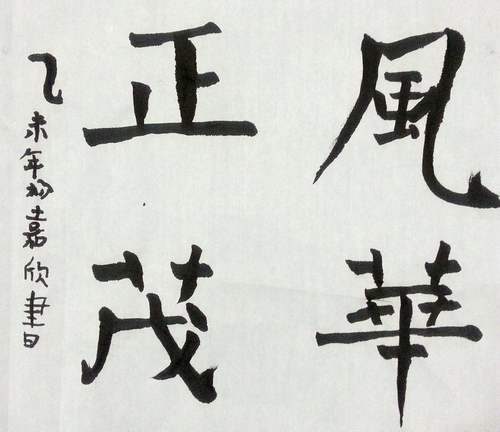 風華
正茂
乙未年杨嘉欣書